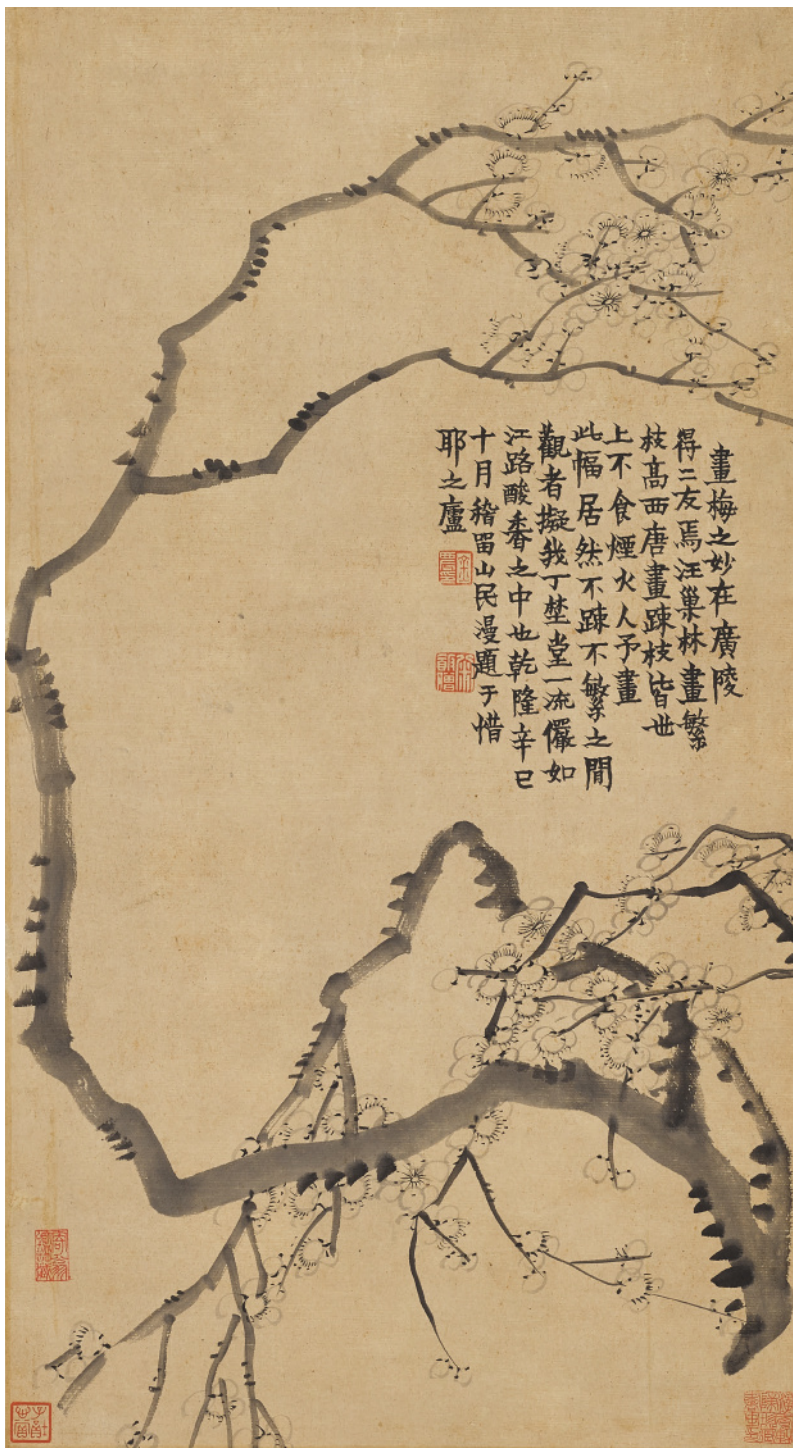 畫梅之妙在廣陵
得二友焉汪巢林畫繁
枝高西唐畫踈枝皆世
上不食煙火人予畫
此幅居然不踈不繁之間
觀者擬我丁埜堂一流儼如
江路酸香之中也乾隆辛巳
十月稽畱山民漫題于惜
耶之廬